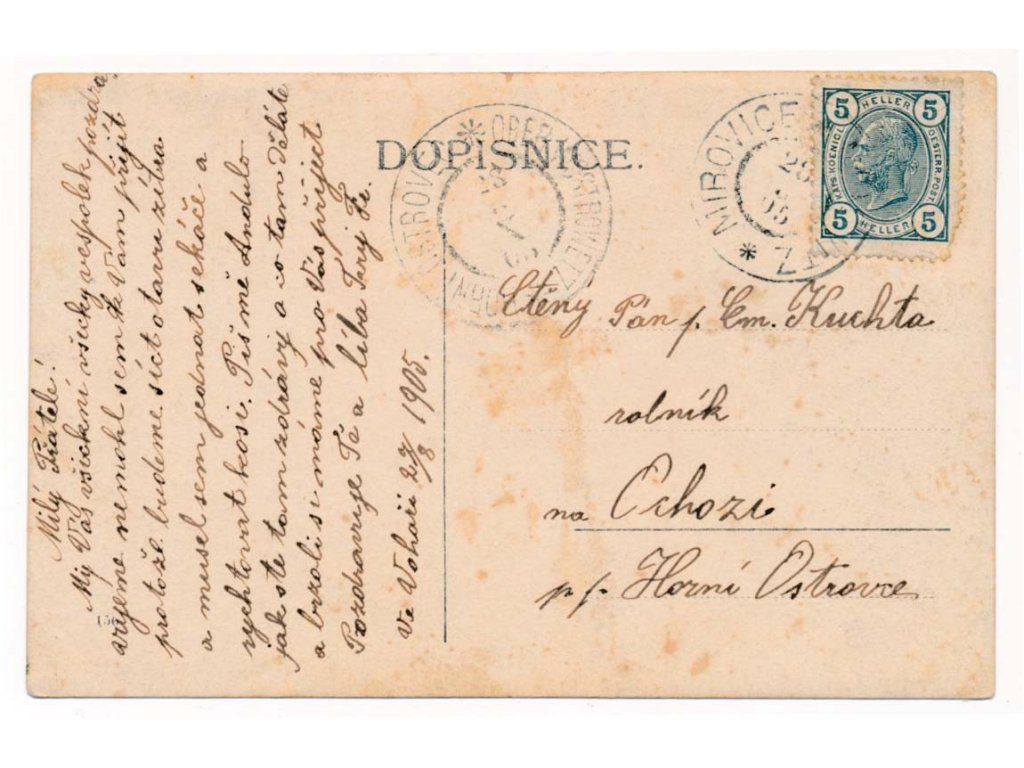 DOPISNICE.
Milý Přátelé!
My Vás všickni všicky vespolek pozdra
vujeme nemohl sem k Vám přijít
protože budeme síct otavu zítra
a musel sem jednat sekáče a
rychtovat kosi. Piš mě Andulo
jak ste tam zdrávy a co tam děláte
a brzo li si máme pro Vás přiject
Pozdravuje Tě a líba Tvuj Fr.
Ve Vohaři 27/8 1905.
156
MIROVICE
28
*
OBER
28
05
5 HELLER 5
KAIS. KOENIGL.
OESTERR. POST
5 HELLER 5
Ctěny Pán p. Em. Kuchta
rolník
na Ochozi
p. p. Horní Ostrovce